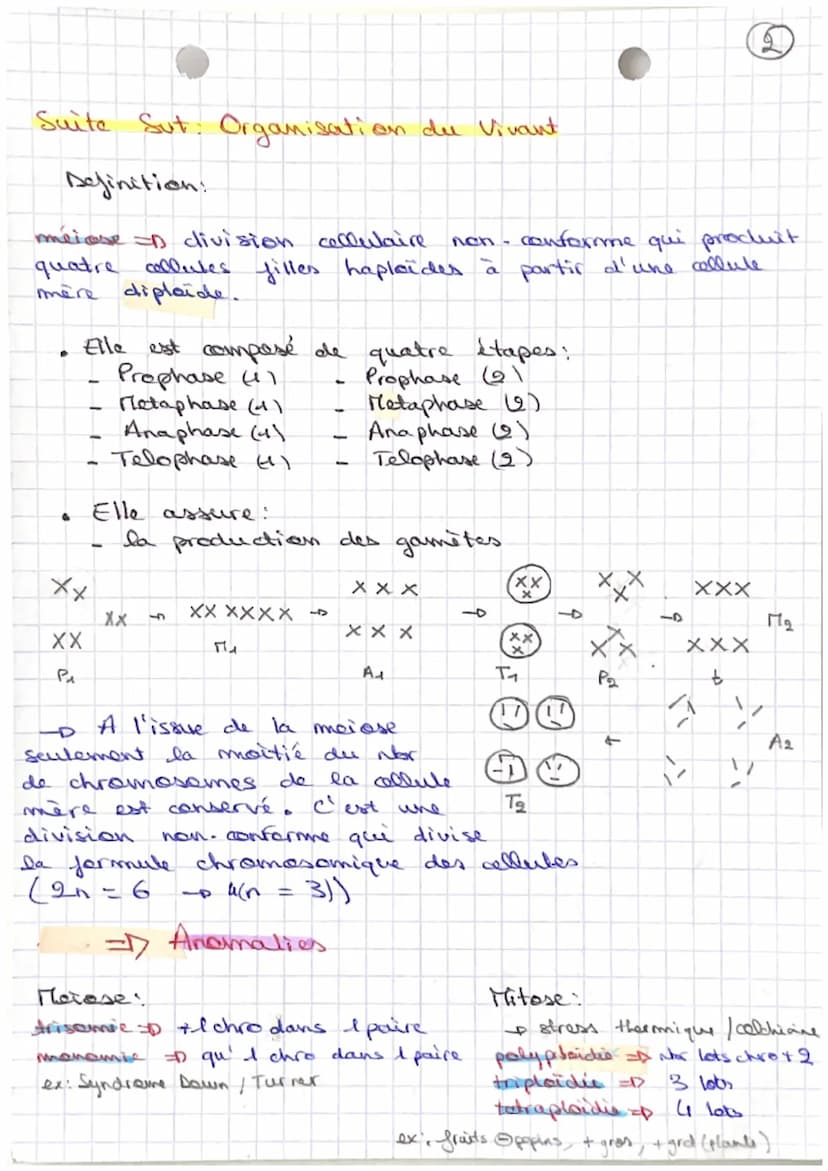 2
Suite Svt: Organisation du Vivant
Definition:
méiose => division cellulaire non-conforme qui produit
quatre cellules filles haploïdes à partir d'une cellule
mère diploïde.
• Elle est composé de quatre étapes:
- Prophase (1) - Prophase (2)
- Metaphase (1) - Metaphase (2)
- Anaphase (1) - Anaphase (2)
- Telophase (1) - Telophase (2)
• Elle assure:
- la production des gamètes
P1 M1 A1 T1 P2 M2
→ A l'issue de la meiose
seulement la moitié du nbr
de chromosomes de la cellule
mère est conservé. C'est une
division non-conforme qui divise
la formule chromosomique des cellules
(2n = 6 → 4(n = 3))
A2
T2
=> Anomalies
Meiose:
trisomie => +1 chro dans 1 paire
monomie => qu'1 chro dans 1 paire
ex: Syndrome Down / Turner
Mitose:
→ stress thermique / colchicine
polyploïdie => nbr lots chro + 2
triploïdie => 3 lots
tetraploïdie => 4 lots
ex: fruits ⊖ pepins, + gros, + grd (plante)